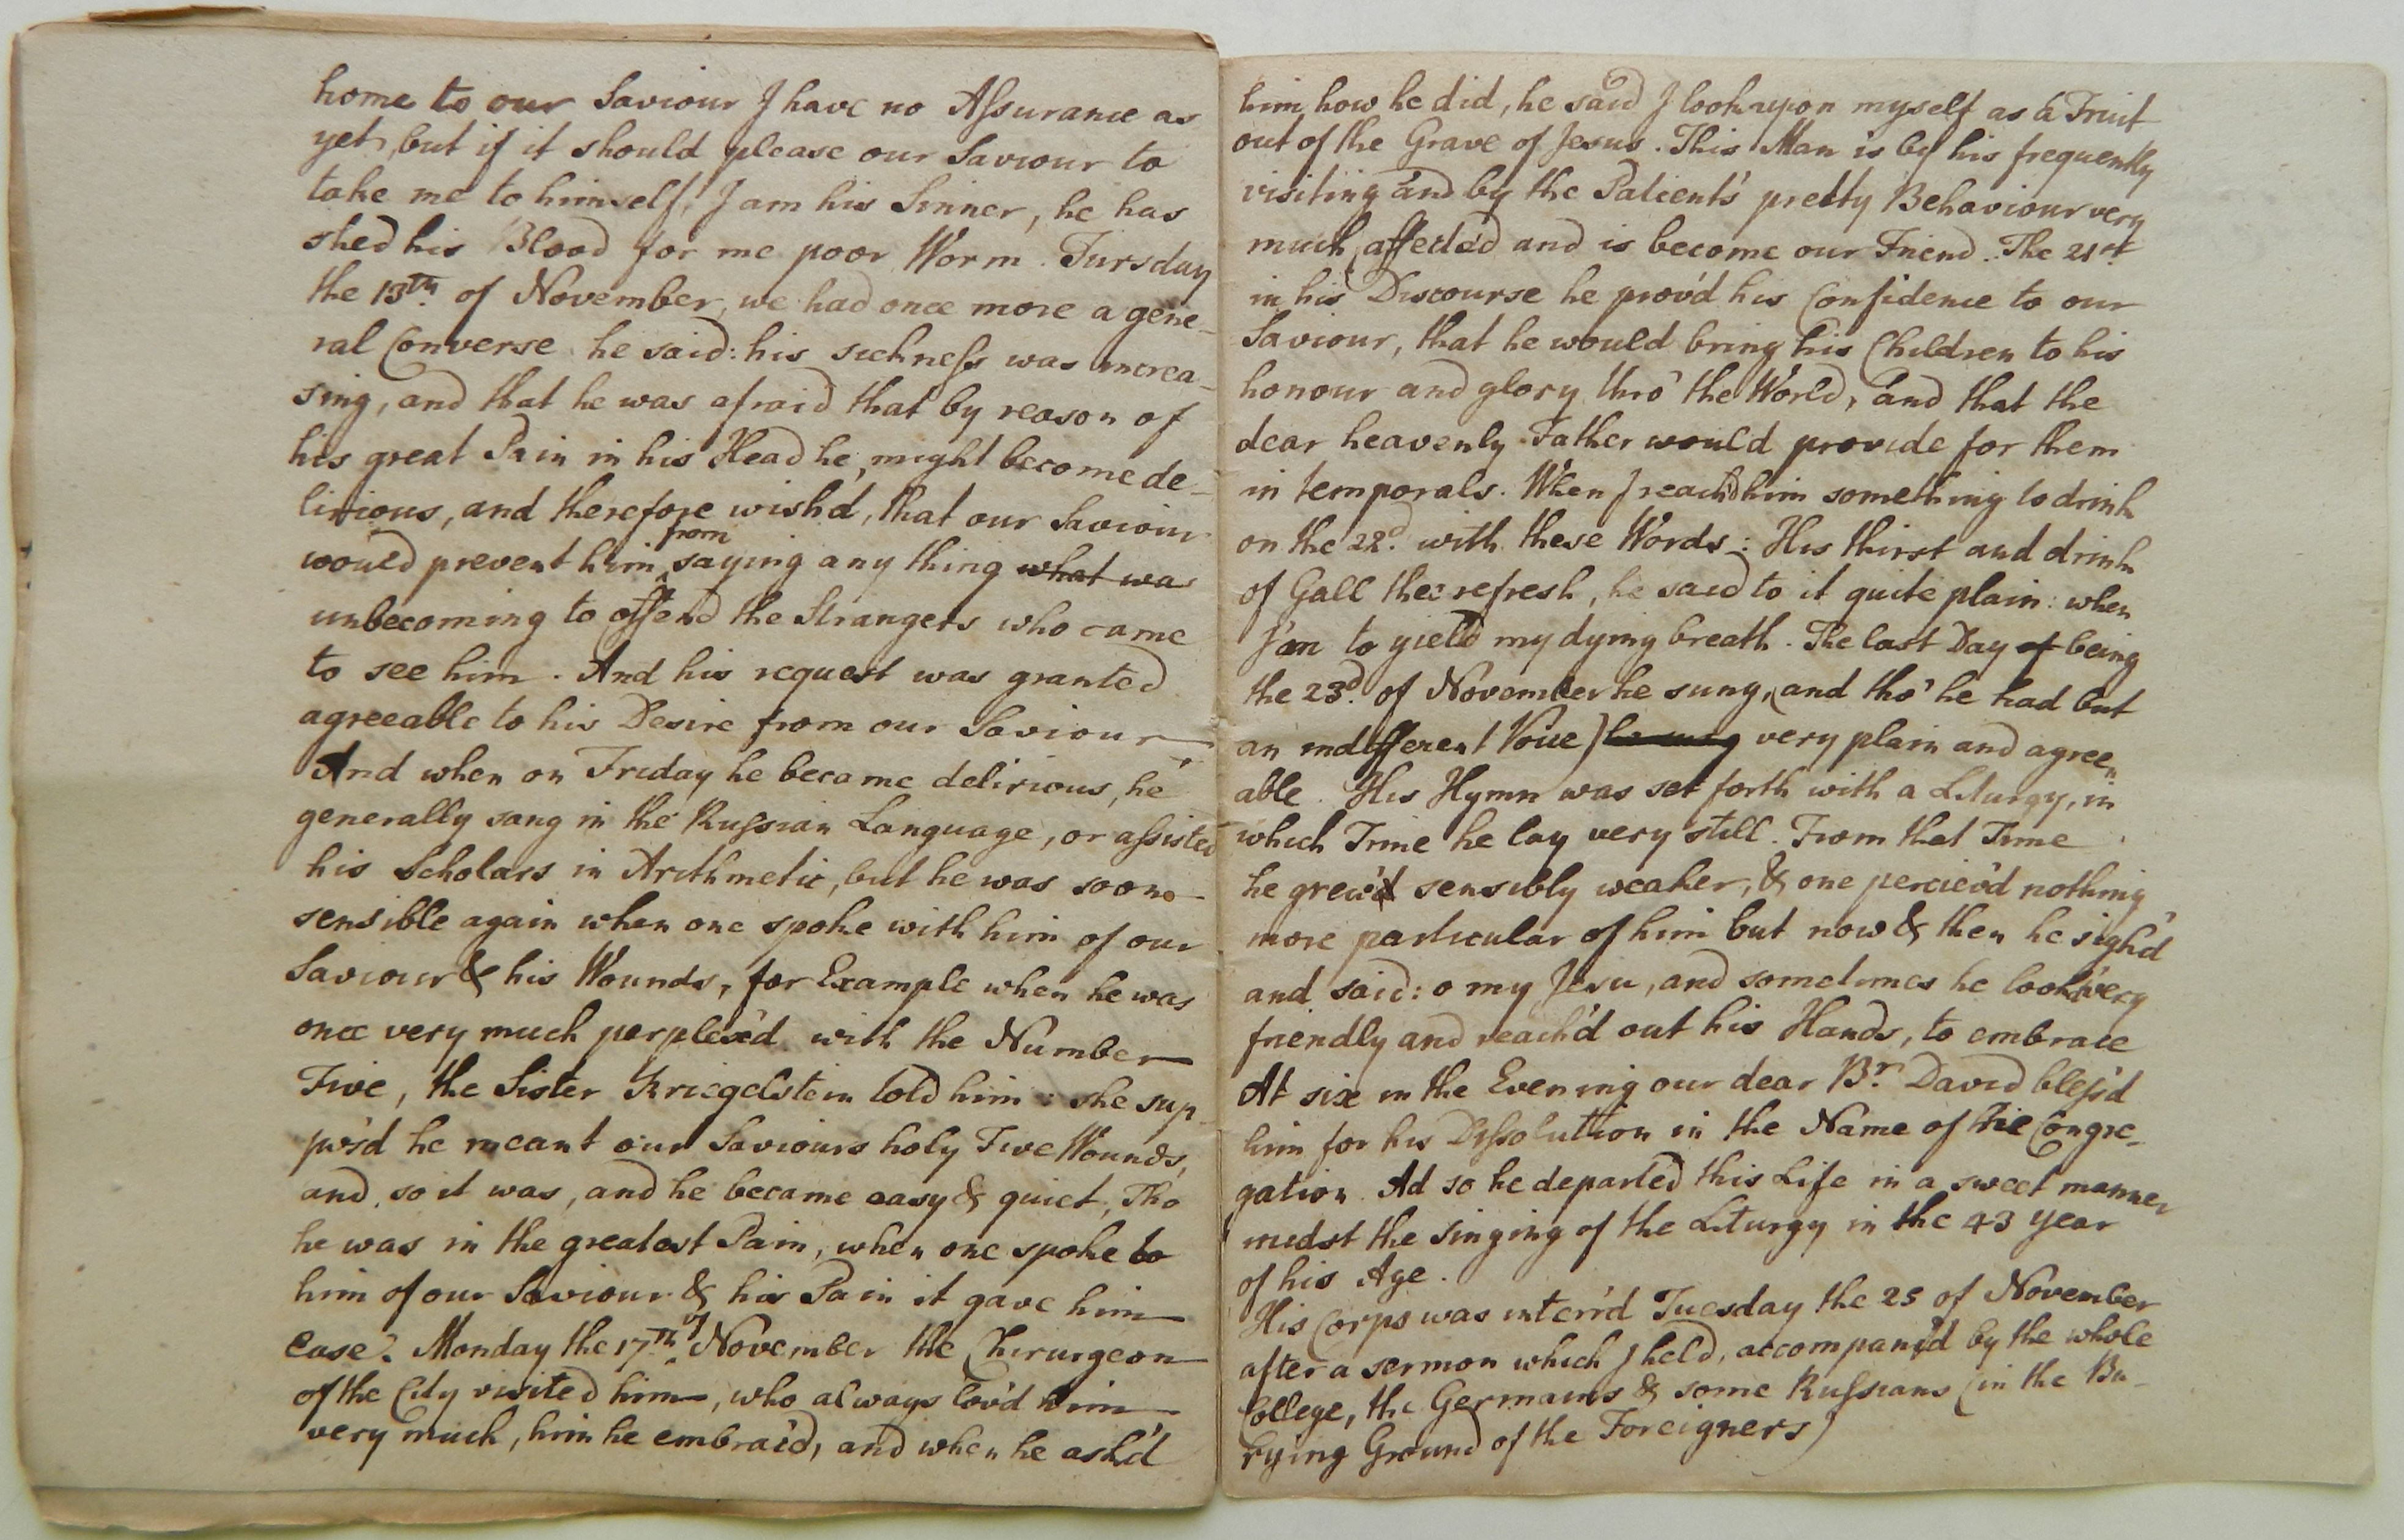 home to our Saviour I have no Assurance as
yet, but if it should please our Saviour to
take me to himself, I am his Sinner, he has
shed his Blood for me poor Worm. Tursday
the 13th. of November, we had once more a gene-
ral Converse he said: his sickness was increa-
sing, and that he was afraid that by reason of
his great Pain in his Head he, might become de-
lirious, and therefore wish'd, that our Saviour
would prevent him from saying any thing what was
unbecoming to offend the Strangers who came
to see him. And his request was granted
agreeable to his Desire from our Saviour
And when on Friday he became delirious, he
generally sang in the Russian Language, or assisted
his Scholars in Arithmetic, but he was soon
sensible again when one spoke with him of our
Saviour & his Wounds, for Example when he was
once very much perplex'd with the Number
Five, the Sister Kriegelstein told him: she sup-
pos'd he meant our Saviours holy Five Wounds,
and so it was, and he became easy & quiet, Tho
he was in the greatest Pain, when one spoke to
him of our Saviour & his Pain it gave him
ease. Monday the 17th. of November the Chirurgeon
of the City visited him, who always lov'd him
very much, him he embrac'd, and when he ask'd
him how he did, he said I look upon myself as a Fruit
out of the Grave of Jesus. This Man is by his frequently
visiting and by the Patient's pretty Behaviour very
much, affected and is become our Friend. The 21st
in his Discourse he prov'd his Confidence to our
Saviour, that he would bring his Children to his
honour and glory thro' the World, and that the
dear heavenly Father would provide for them
in temporals. When I reach'd him something to drink
on the 22d. with these Words: His thirst and drink
of Gall thee refresh, he said to it quite plain: when
I'am to yield my dying breath. The last Day of being
the 23d. of November he sung, (and tho' he had but
an indifferent Voice) he sung very plain and agree-
able. His Hymn was set forth with a Liturgy, in
which Time he lay very still. From that Time
he grew'd sensibly weaker, & one perciev'd nothing
more particular of him but now & then he sigh'd
and said: o my Jesu, and sometimes he look'd very
friendly and reach'd out his Hands, to embrace
At six in the Evening our dear Br. David bless'd
him for his Dissolution in the Name of the Congre-
gation. Ad so he departed this Life in a sweet manner
midst the singing of the Liturgy in the 43 year
of his Age.
His Corps was interr'd Tuesday the 25 of November
after a sermon which I held, accompany'd by the whole
College, the Germains & some Russians (in the Bu-
rying Ground of the Foreigners)